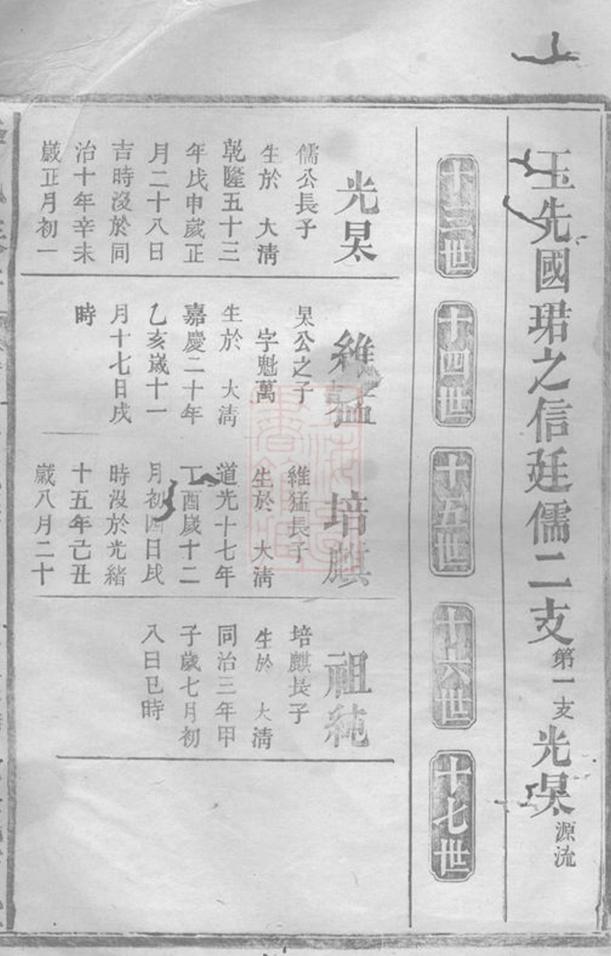 玉先國珺之信廷儒二支 第一支 光杲 源流
十三世
十四世
十五世
十六世
十七世
光杲
儒公長子
生於 大清
乾隆五十三
年戊申歲正
月二十八日
吉時沒於同
治十年辛未
歲正月初一
維猛
杲公之子
字魁萬
生於 大清
嘉慶二十年
乙亥歲十一
月十七日戌
時
培麒
維猛長子
生於 大清
道光十七年
丁酉歲十二
月初四日戌
時沒於光緒
十五年己丑
歲八月二十
祖純
培麒長子
生於 大清
同治三年甲
子歲七月初
八日巳時